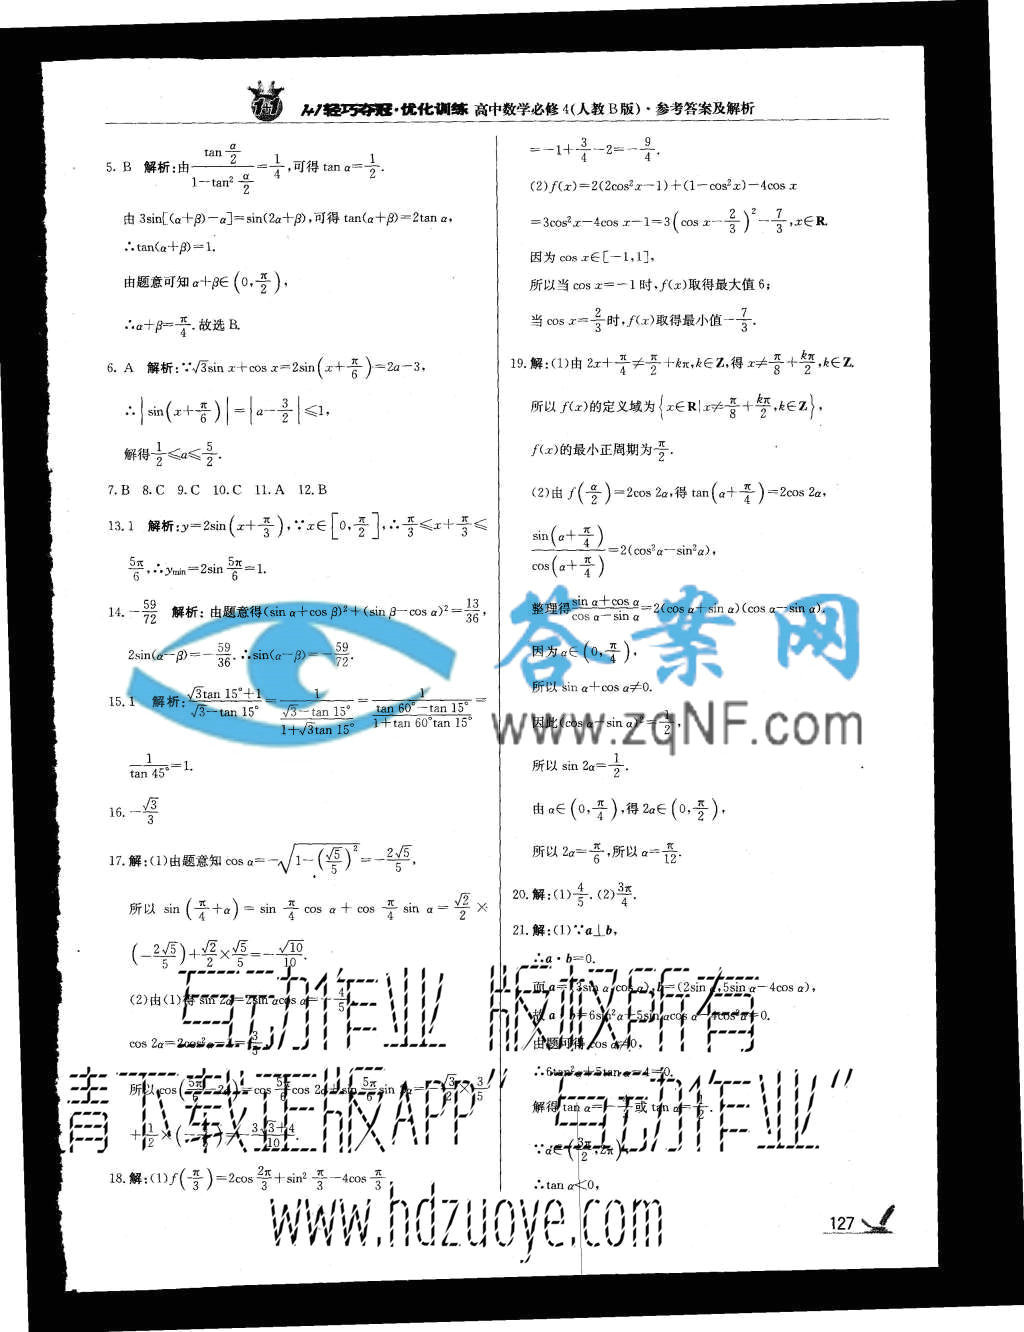 1+1轻巧夺冠·优化训练 高中数学必修4(人教B版)·参考答案及解析
5. B 解析:由 tan α/2 / (1−tan² α/2) = 1/4,可得 tan α=1/2.
由 3sin[(α+β)−α]=sin(2α+β),可得 tan(α+β)=2tan α,
∴tan(α+β)=1.
由题意可知 α+β∈(0,π/2),
∴α+β=π/4.故选 B.
6. A 解析:∵√3sin x+cos x=2sin(x+π/6)=2a−3,
∴|sin(x+π/6)|=|a−3/2|≤1,
解得 1/2≤a≤5/2.
7. B 8. C 9. C 10. C 11. A 12. B
13. 1 解析:y=2sin(x+π/3),∵x∈[0,π/2],∴π/3≤x+π/3≤
5π/6,∴ymin=2sin 5π/6=1.
14. −59/72 解析:由题意得(sin α+cos β)²+(sin β−cos α)²=13/36,
2sin(α−β)=−59/36.∴sin(α−β)=−59/72.
15. 1 解析:(√3tan 15°+1)/(√3−tan 15°)=1/((√3−tan 15°)/(1+√3tan 15°))=1/((tan 60°−tan 15°)/(1+tan 60°tan 15°))=
1/tan 45°=1.
16. −√3/3
17. 解:(1)由题意知 cos α=−√(1−(√5/5)²)=−2√5/5,
所以 sin(π/4+α)=sin π/4 cos α+cos π/4 sin α=√2/2×
(−2√5/5)+√2/2×√5/5=−√10/10.
(2)由(1)得 sin 2α=2sin αcos α=−4/5
cos 2α=2cos²α−1=3/5
所以 cos(5π/6−2α)=cos 5π/6 cos 2α+sin 5π/6 sin 2α=−√3/2×3/5
+1/2×(−4/5)=−(3√3+4)/10.
18. 解:(1)f(π/3)=2cos 2π/3+sin² π/3−4cos π/3
=−1+3/4−2=−9/4.
(2)f(x)=2(2cos²x−1)+(1−cos²x)−4cos x
=3cos²x−4cos x−1=3(cos x−2/3)²−7/3,x∈R.
因为 cos x∈[−1,1],
所以当 cos x=−1 时,f(x)取得最大值 6;
当 cos x=2/3时,f(x)取得最小值−7/3.
19. 解:(1)由 2x+π/4≠π/2+kπ,k∈Z,得 x≠π/8+kπ/2,k∈Z.
所以 f(x)的定义域为{x∈R|x≠π/8+kπ/2,k∈Z},
f(x)的最小正周期为π/2.
(2)由 f(α/2)=2cos 2α,得 tan(α+π/4)=2cos 2α,
sin(α+π/4)/cos(α+π/4)=2(cos²α−sin²α),
整理得(sin α+cos α)/(cos α−sin α)=2(cos α+sin α)(cos α−sin α).
因为 α∈(0,π/4),
所以 sin α+cos α≠0.
因此(cos α−sin α)²=1/2,
所以 sin 2α=1/2.
由 α∈(0,π/4),得 2α∈(0,π/2),
所以 2α=π/6,所以 α=π/12.
20. 解:(1)4/5.(2)3π/4.
21. 解:(1)∵a⊥b,
∴a·b=0.
而 a=(3sin α,cos α),b=(2sin α,5sin α−4cos α),
故 a·b=6sin²α+5sin αcos α−4cos²α=0.
由题可得 cos α≠0,
∴6tan²α+5tan α−4=0.
解得 tan α=− 或 tan α=1/2.
∵α∈(3π/2,2π),
∴tan α<0,
答案网
www.zqNF.com
互动作业 版权所有
请下载正版APP“互动作业”
www.hdzuoye.com
127